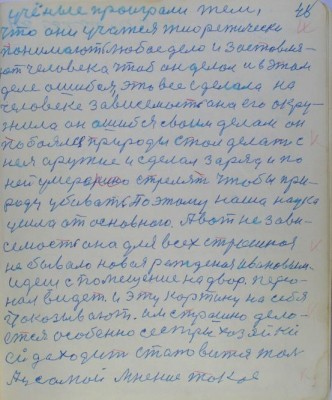 46
учёные проиграли тем,
что они учатся теоретически
понимают любое дело и заставля-
ют человека чтоб он делал и в этом
деле ошибся, это все сделала на
человеке зависемость она его окру-
жила он ошибся своим делом он
побоялся природы стал делать с
нея аружие и сделал заряд и по
ней умера стрелят чтобы при-
роду убивать поэтому наша наука
ушла от основного. А вот не зави-
семость она для всех страшная
не бывало новая рожденая Ивановым.
идеш с помещение на двор. персо-
нал видет и эту картину на себя
показывают. им страшно дело-
ется особенно сестры хозяйки
ей даходит становится там
А у самой мнение такое